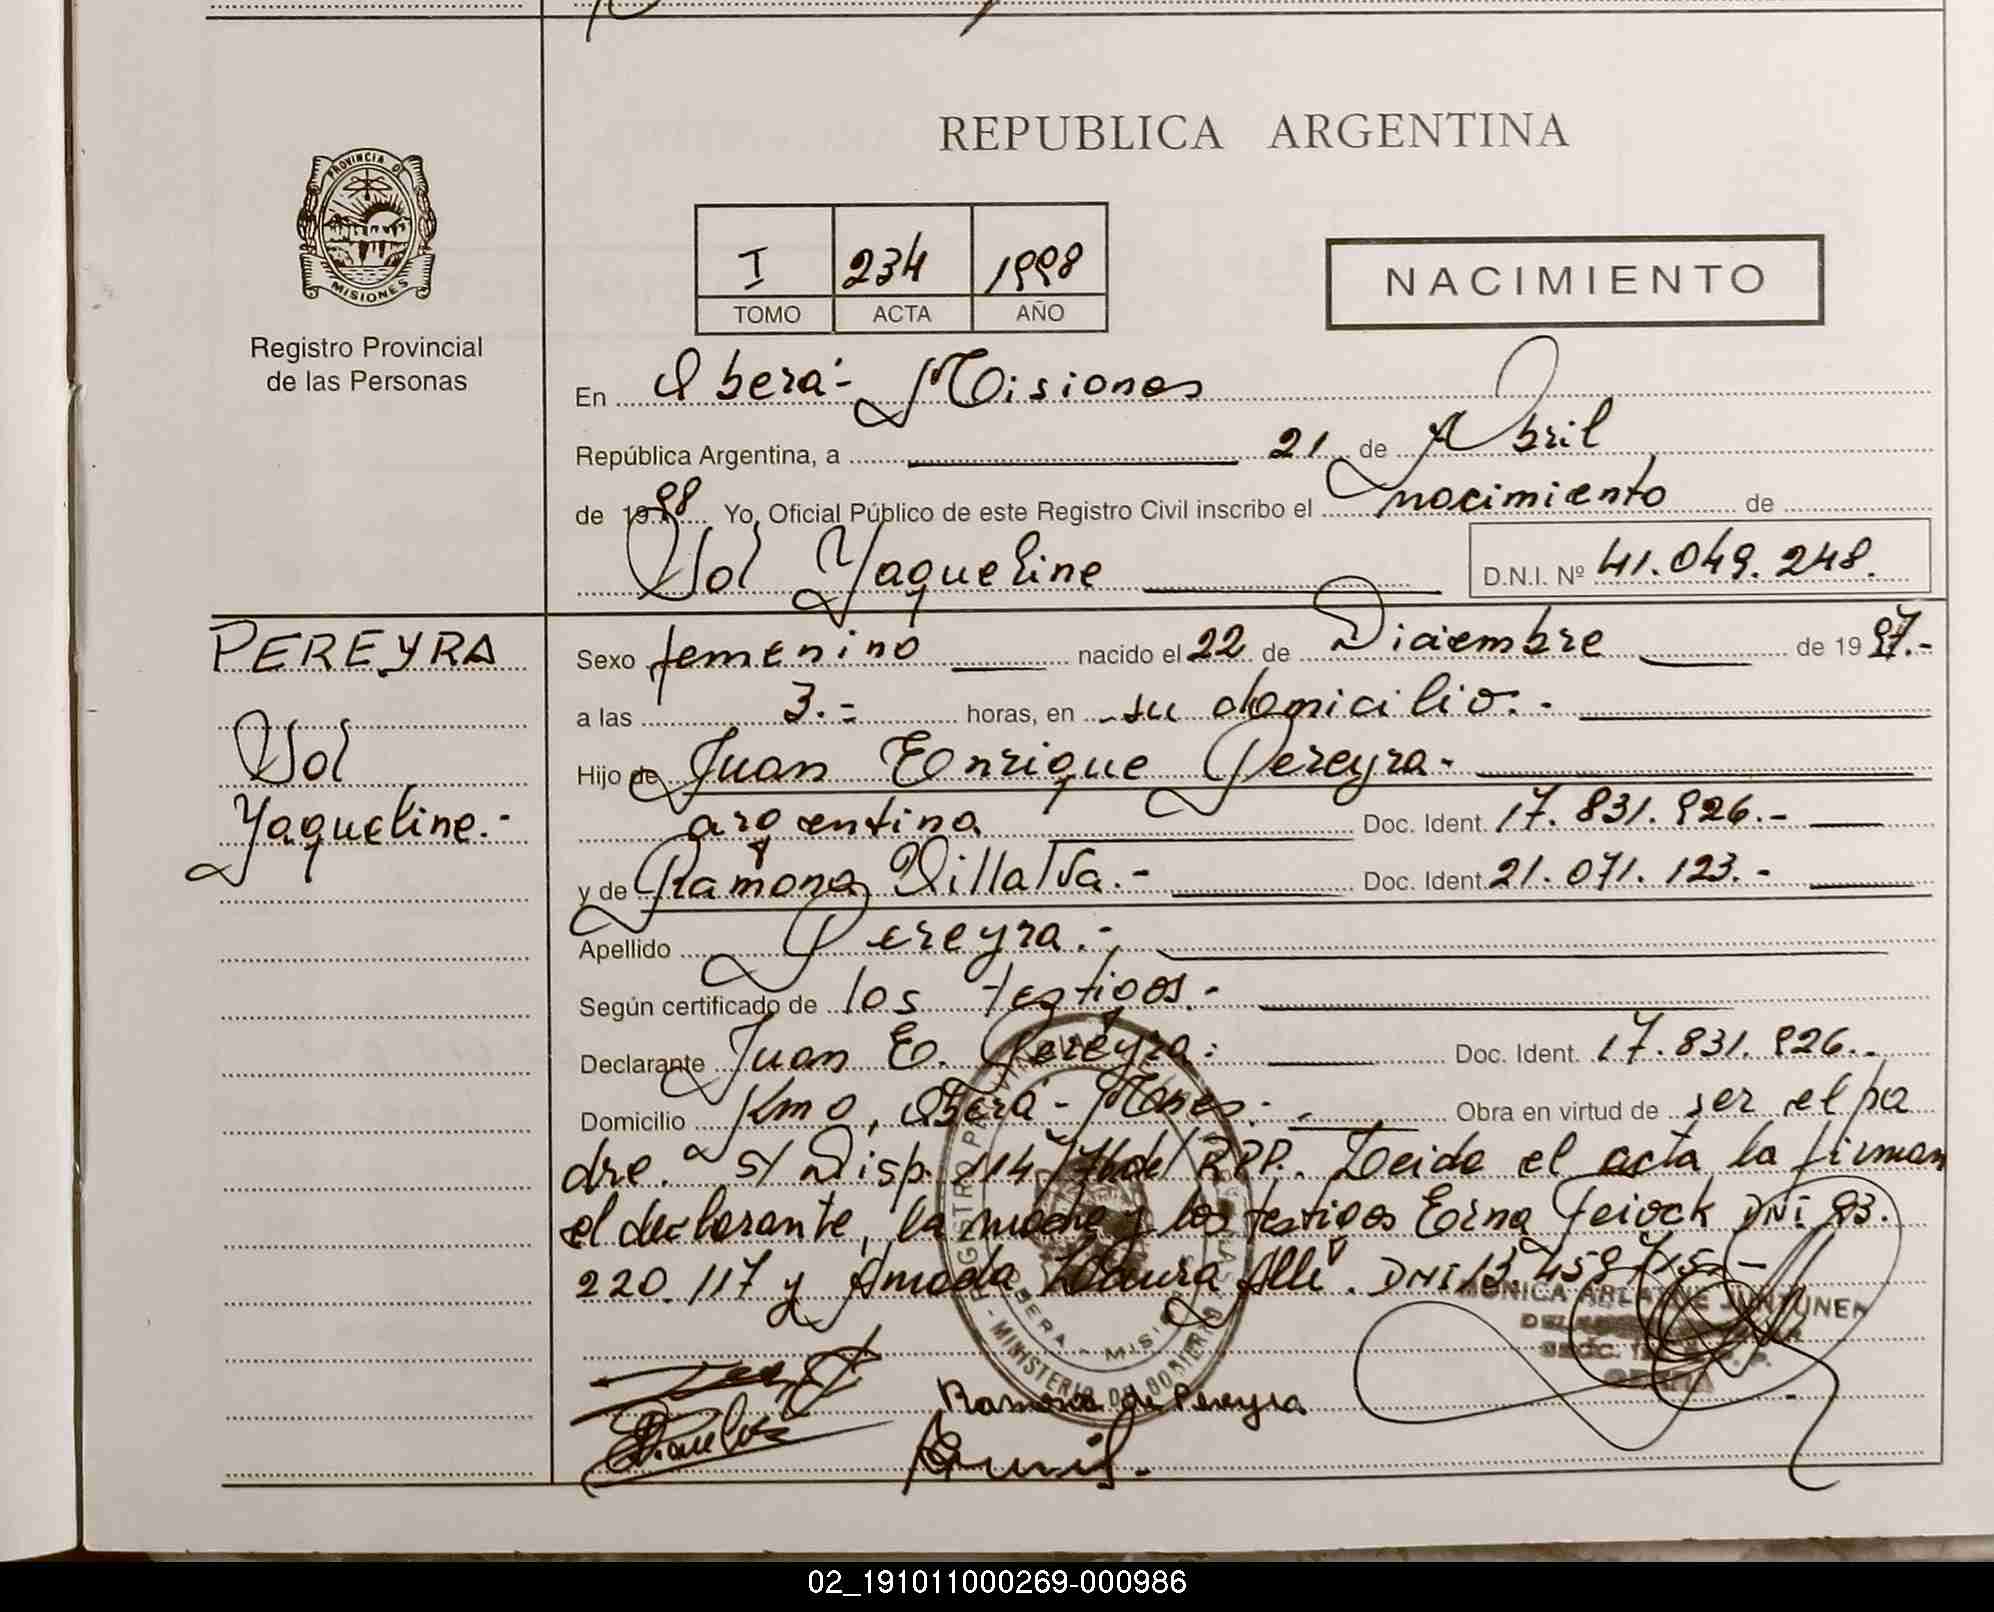 REPUBLICA ARGENTINA
PROVINCIA DE
MISIONES
Registro Provincial
de las Personas
I 234 1998
TOMO ACTA AÑO
NACIMIENTO
En Oberá - Misiones
República Argentina, a 21 de Abril
de 1998 Yo, Oficial Público de este Registro Civil inscribo el nacimiento de
Sol Yaqueline
D.N.I. Nº 41.049.248.
PEREYRA
Sol
Yaqueline.-
Sexo femenino nacido el 22 de Diciembre de 1997.-
a las 3.- horas, en su domicilio.-
Hijo de Juan Enrique Pereyra-
argentina Doc. Ident. 17.831.926.-
y de Ramona Villalva.- Doc. Ident. 21.071.123.-
Apellido Pereyra.-
Según certificado de los testigos.-
Declarante Juan E. Pereyra: Doc. Ident. 17.831.926.-
Domicilio Km 0, Oberá - Mnes.- Obra en virtud de ser el pa
dre. S/ Disp. 114/ del RPP. Leida el acta la firman
el declarante, la madre y los testigos Erna Feiock DNI 93.
220.117 y Amada Laura Alle. DNI 13.459.715.-
MONICA ARLAINE JUNTUNEN
OBERA
REGISTRO PROVINCIAL DE LAS
MINISTERIO DE GOBIERNO
OBERA - MISIONES
Ramona de Pereyra
02_191011000269-000986